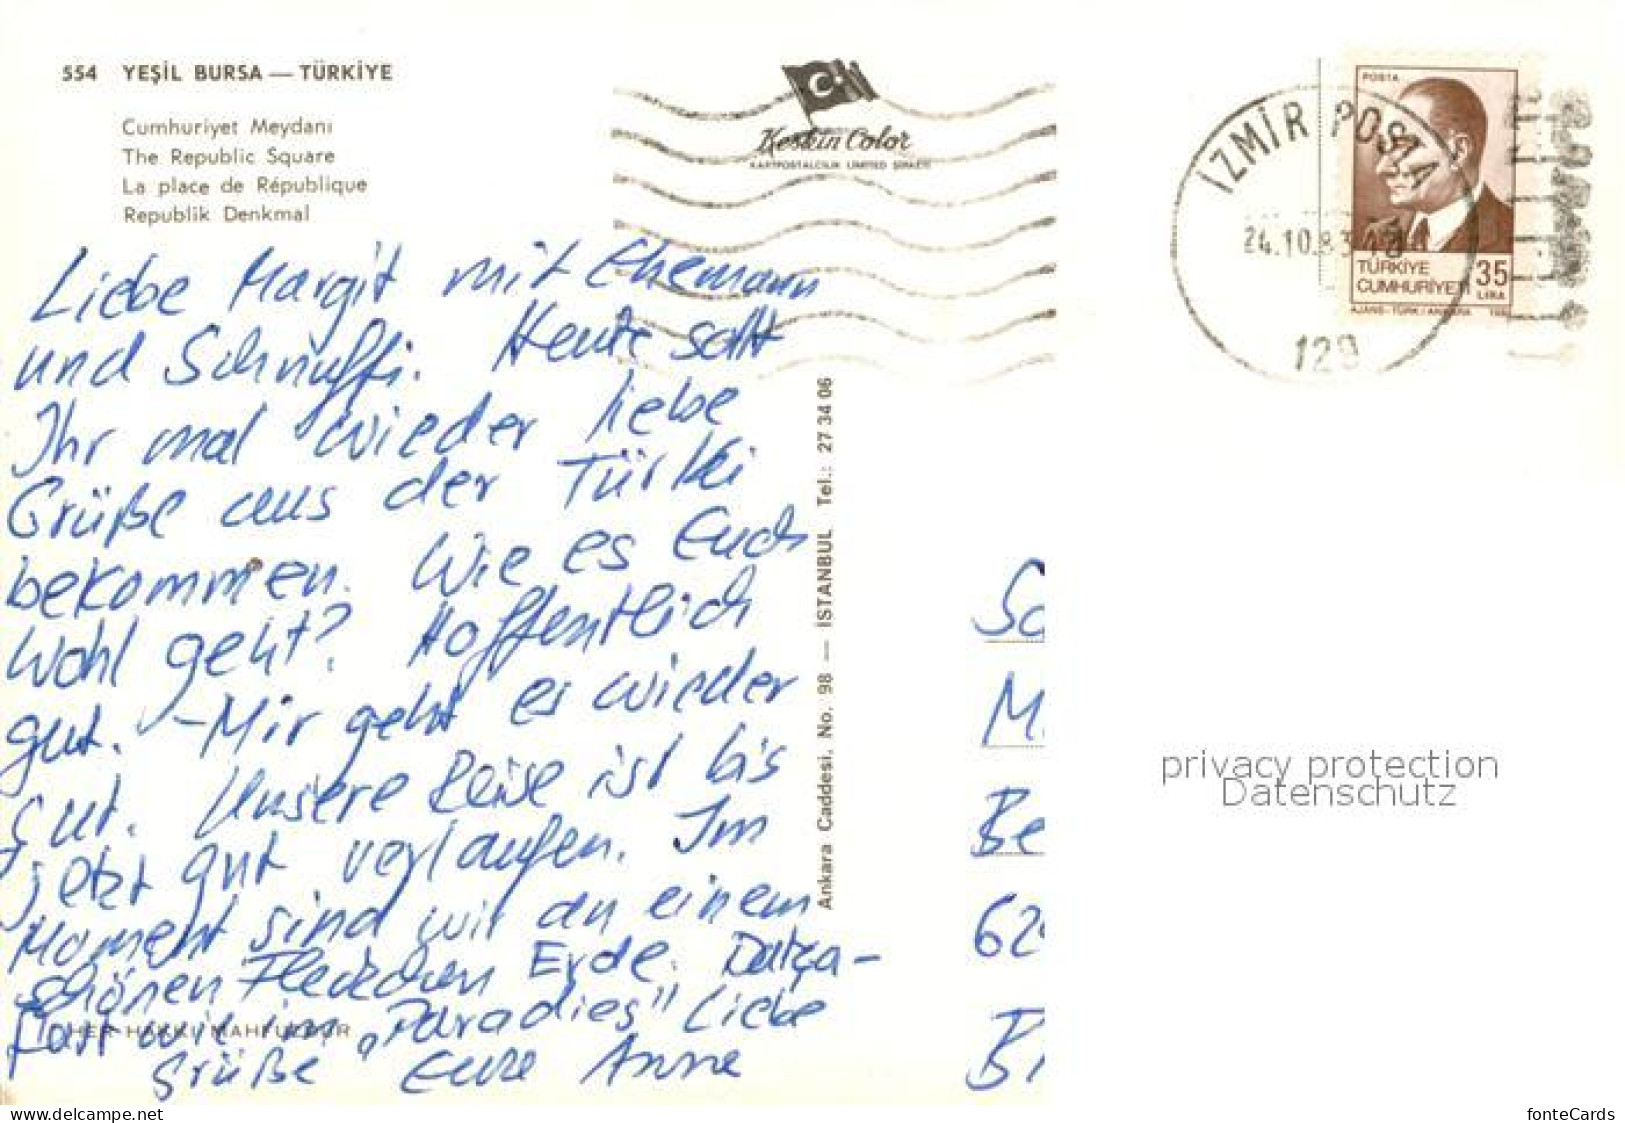 554 YEŞİL BURSA — TÜRKİYE
Cumhuriyet Meydanı
The Republic Square
La place de République
Republik Denkmal
Keskin Color
KARTPOSTALCILIK LIMITED ŞİRKETİ
İZMİR POSTA
24.10.83
129
POSTA
TÜRKİYE
CUMHURİYETİ
35
LİRA
AJANS-TÜRK/ANKARA
Liebe Margit mit Ehemann
und Schnuffi. Heute sollt
Ihr mal wieder liebe
Grüße aus der Türkei
bekommen. Wie es Euch
wohl geht? Hoffentlich
gut. - Mir geht es wieder
gut. Unsere Reise ist bis
jetzt gut verlaufen. Im
Moment sind wir an einem
schönen Fleckchen Erde. Datça-
fast wie im „Paradies" Liebe
Grüße Eure Anne
HER HAKKI MAHFUZDUR
Ankara Caddesi, No. 98 — İSTANBUL Tel.: 27 34 06
Sc
M
Be
62
B
privacy protection
Datenschutz
www.delcampe.net
fonteCards